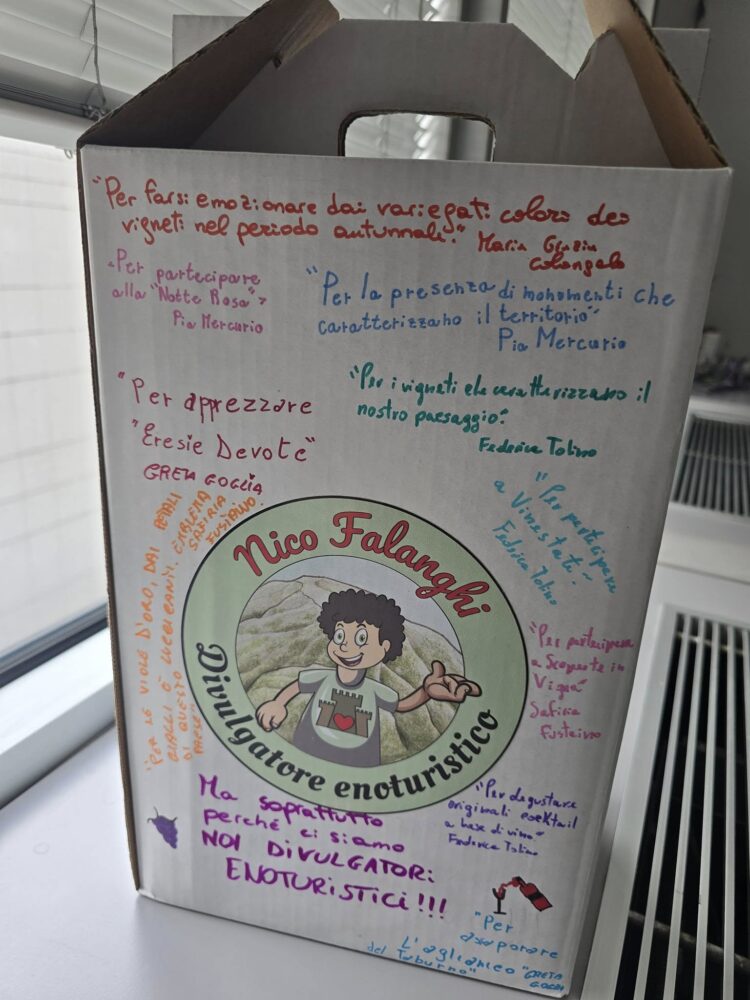 "Per farsi emozionare dai variegati colori dei
vigneti nel periodo autunnale." Maria Grazia
Colangelo
"Per partecipare
alla "Notte Rosa"
Pia Mercurio
"Per la presenza di monumenti che
caratterizzano il territorio"
Pia Mercurio
"Per i vigneti che caratterizzano il
nostro paesaggio".
Federica Tolino
"Per apprezzare
"Eresie Devote"
GRETA GOGLIA
"Per partecipare
a Vinestate"
Federica Tolino
"PER LE VIOLE D'ORO, DAI PETALI
GIALLI E LUCCICANTI, EMBLEMA
DI QUESTO PAESE"
SAFIRIA
FUSTAINO
Nico Falanghi
Divulgatore enoturistico
"Per partecipare
a Scoperte in
Vigna"
Safiria
Fustaino
"Per degustare
originali cocktail
a base di vino"
Federica Tolino
Ma soprattutto
perché ci siamo
NOI DIVULGATORI
ENOTURISTICI!!!
"Per
assaporare
L'aglianico
del Taburno"
GRETA
GOGLIA